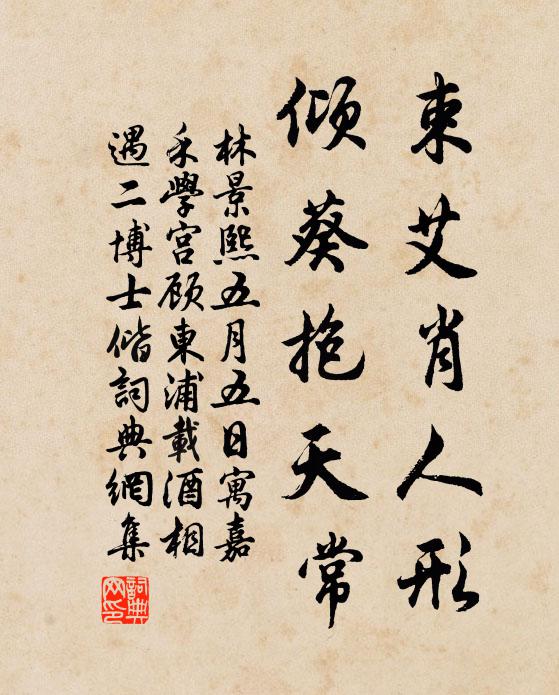 束艾肖人形
傾葵抱天常
林景熙五月五日寓嘉
禾學宮顾東浦載酒相
遇二博士偕詞典網集
詞典
网印